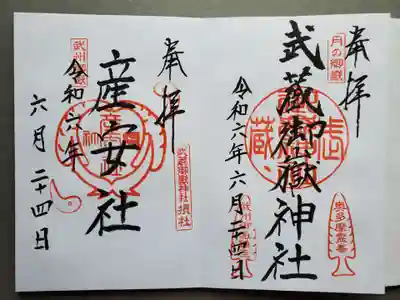 奉拝
月の御嶽
武蔵御嶽神社
令和六年六月二十四日
奥多摩霊峯
奉拝
武州御嶽
産女社
武蔵御嶽神社摂社
令和六年
六月二十四日